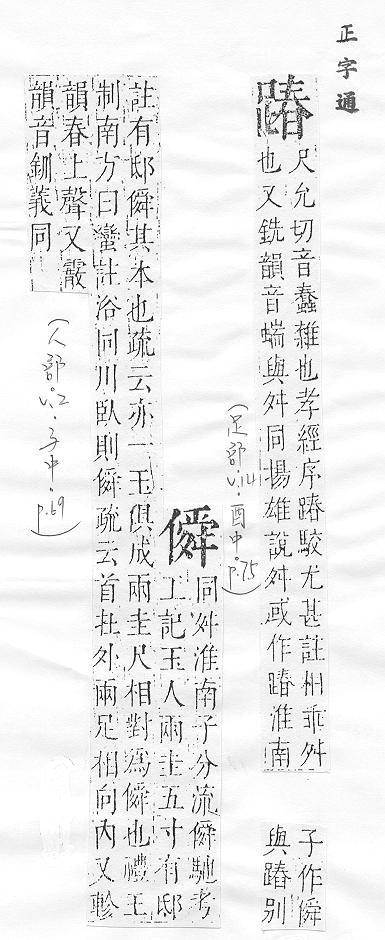 正字通
踳
尺允切音蠢雜也孝經序踳駮尤甚註相乖舛
也又銑韻音喘與舛同揚雄說舛或作踳淮南
子作僢
與踳别
(足部v.14.酉中.p.75)
僢
同舛淮南子分流僢馳考
工記玉人兩圭五寸有邸
註有邸僢其本也疏云亦一玉俱成兩圭尺相對爲僢也禮王
制南方曰蠻註浴同川臥則僢疏云首在外兩足相向內又軫
韻春上聲又霰
韻音釧義同
(人部.v.2.子中.p.69)